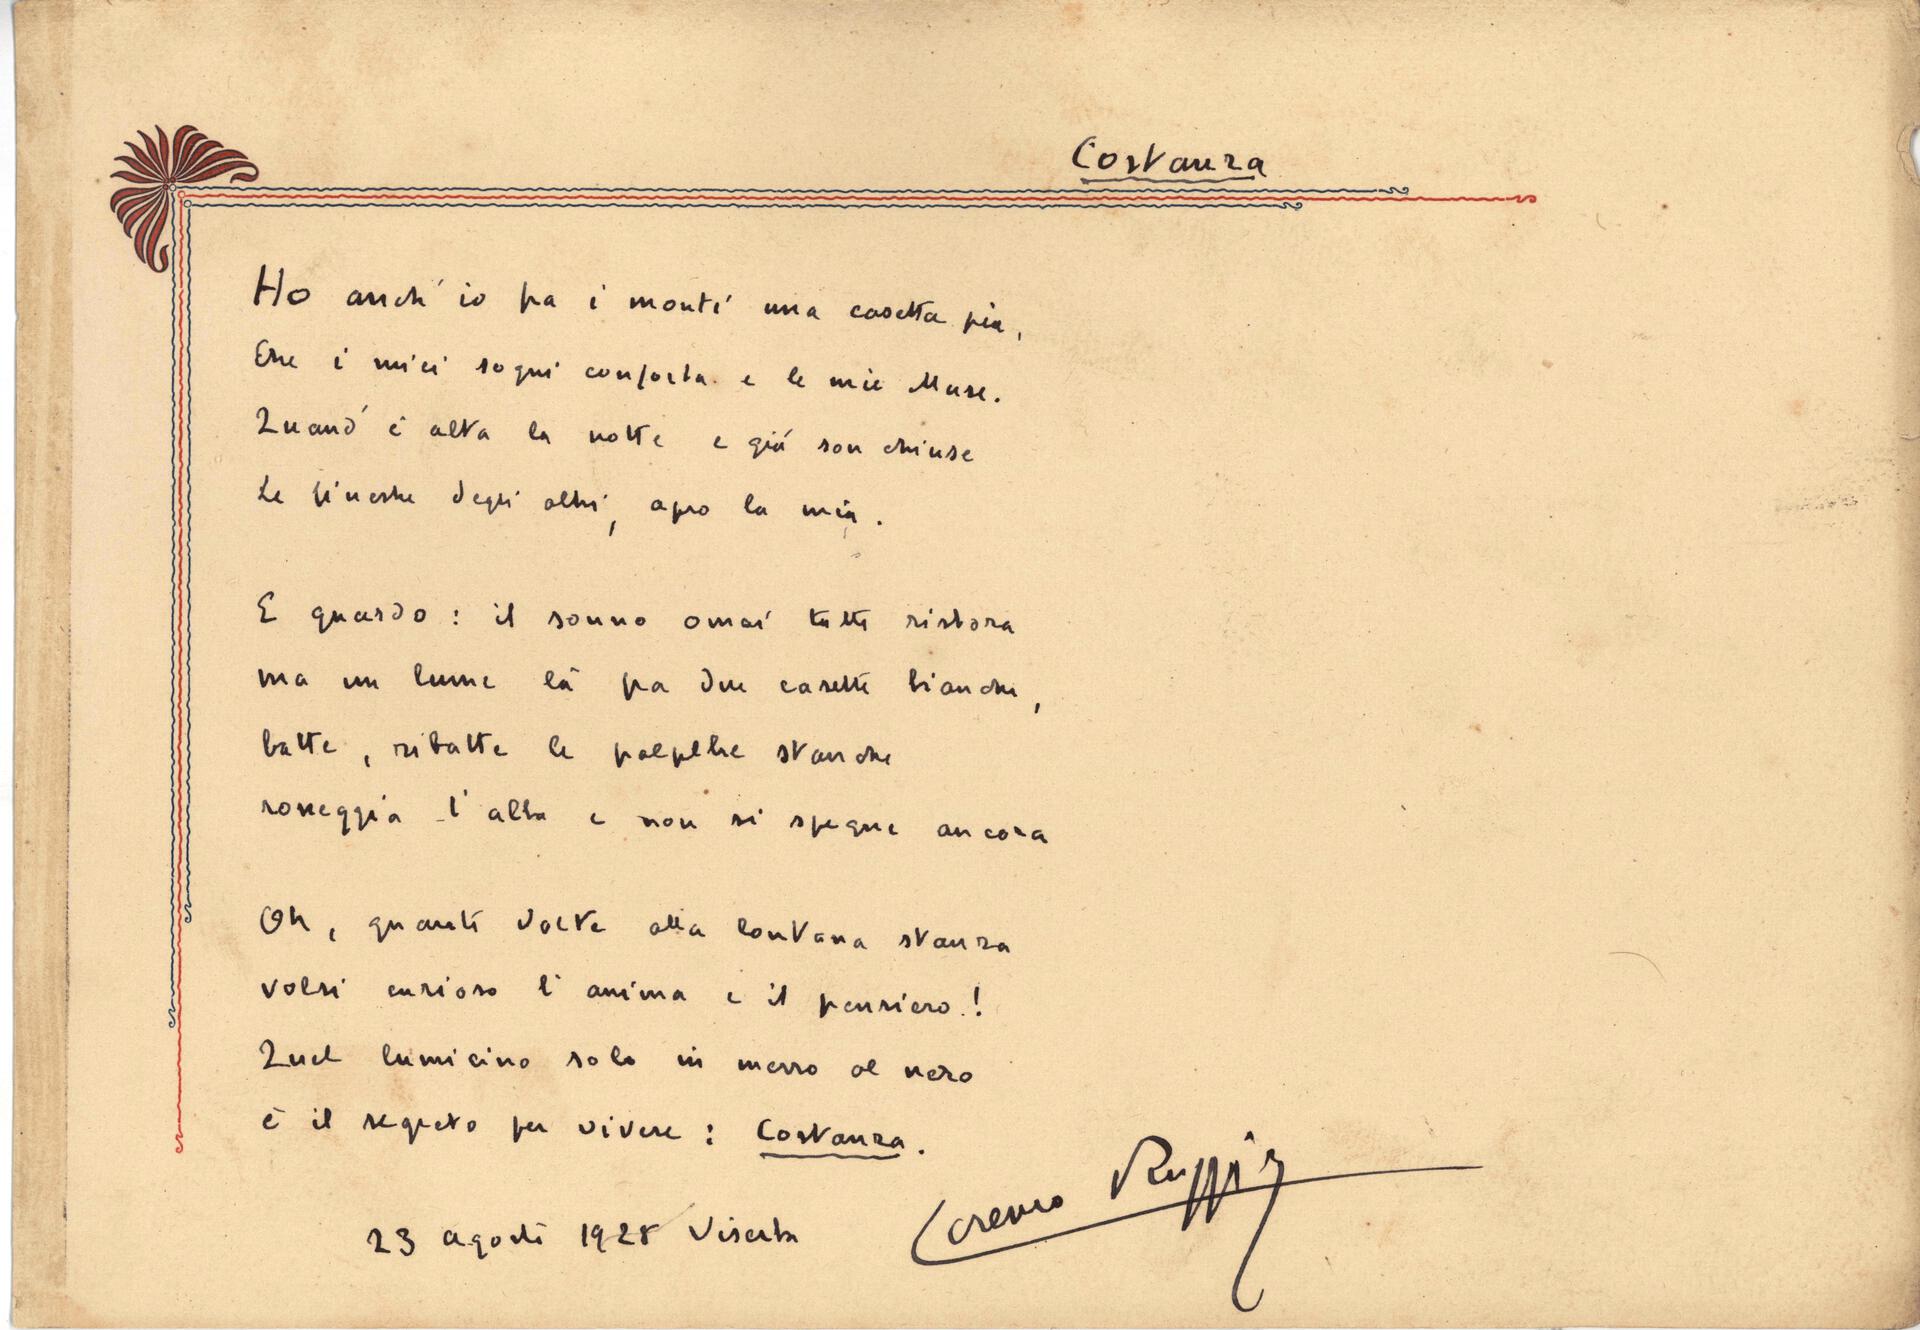 Costanza
Ho anch'io fra i monti una casetta pia,
Che i miei sogni conforta e le mie Muse.
Quand'è alta la notte e già son chiuse
Le finestre degli altri, apro la mia.
E guardo: il sonno omai tutti ristora
ma un lume là fra due casette bianche,
batte, ribatte le palpebre stanche
rosseggia l'alba e non si spegne ancora
Oh, quante volte alla lontana stanza
volsi curioso l'anima e il pensiero!
Quel lumicino solo in mezzo al nero
è il segreto per vivere: Costanza.
23 agosto 1928 Viserba
Lorenzo Ruggi